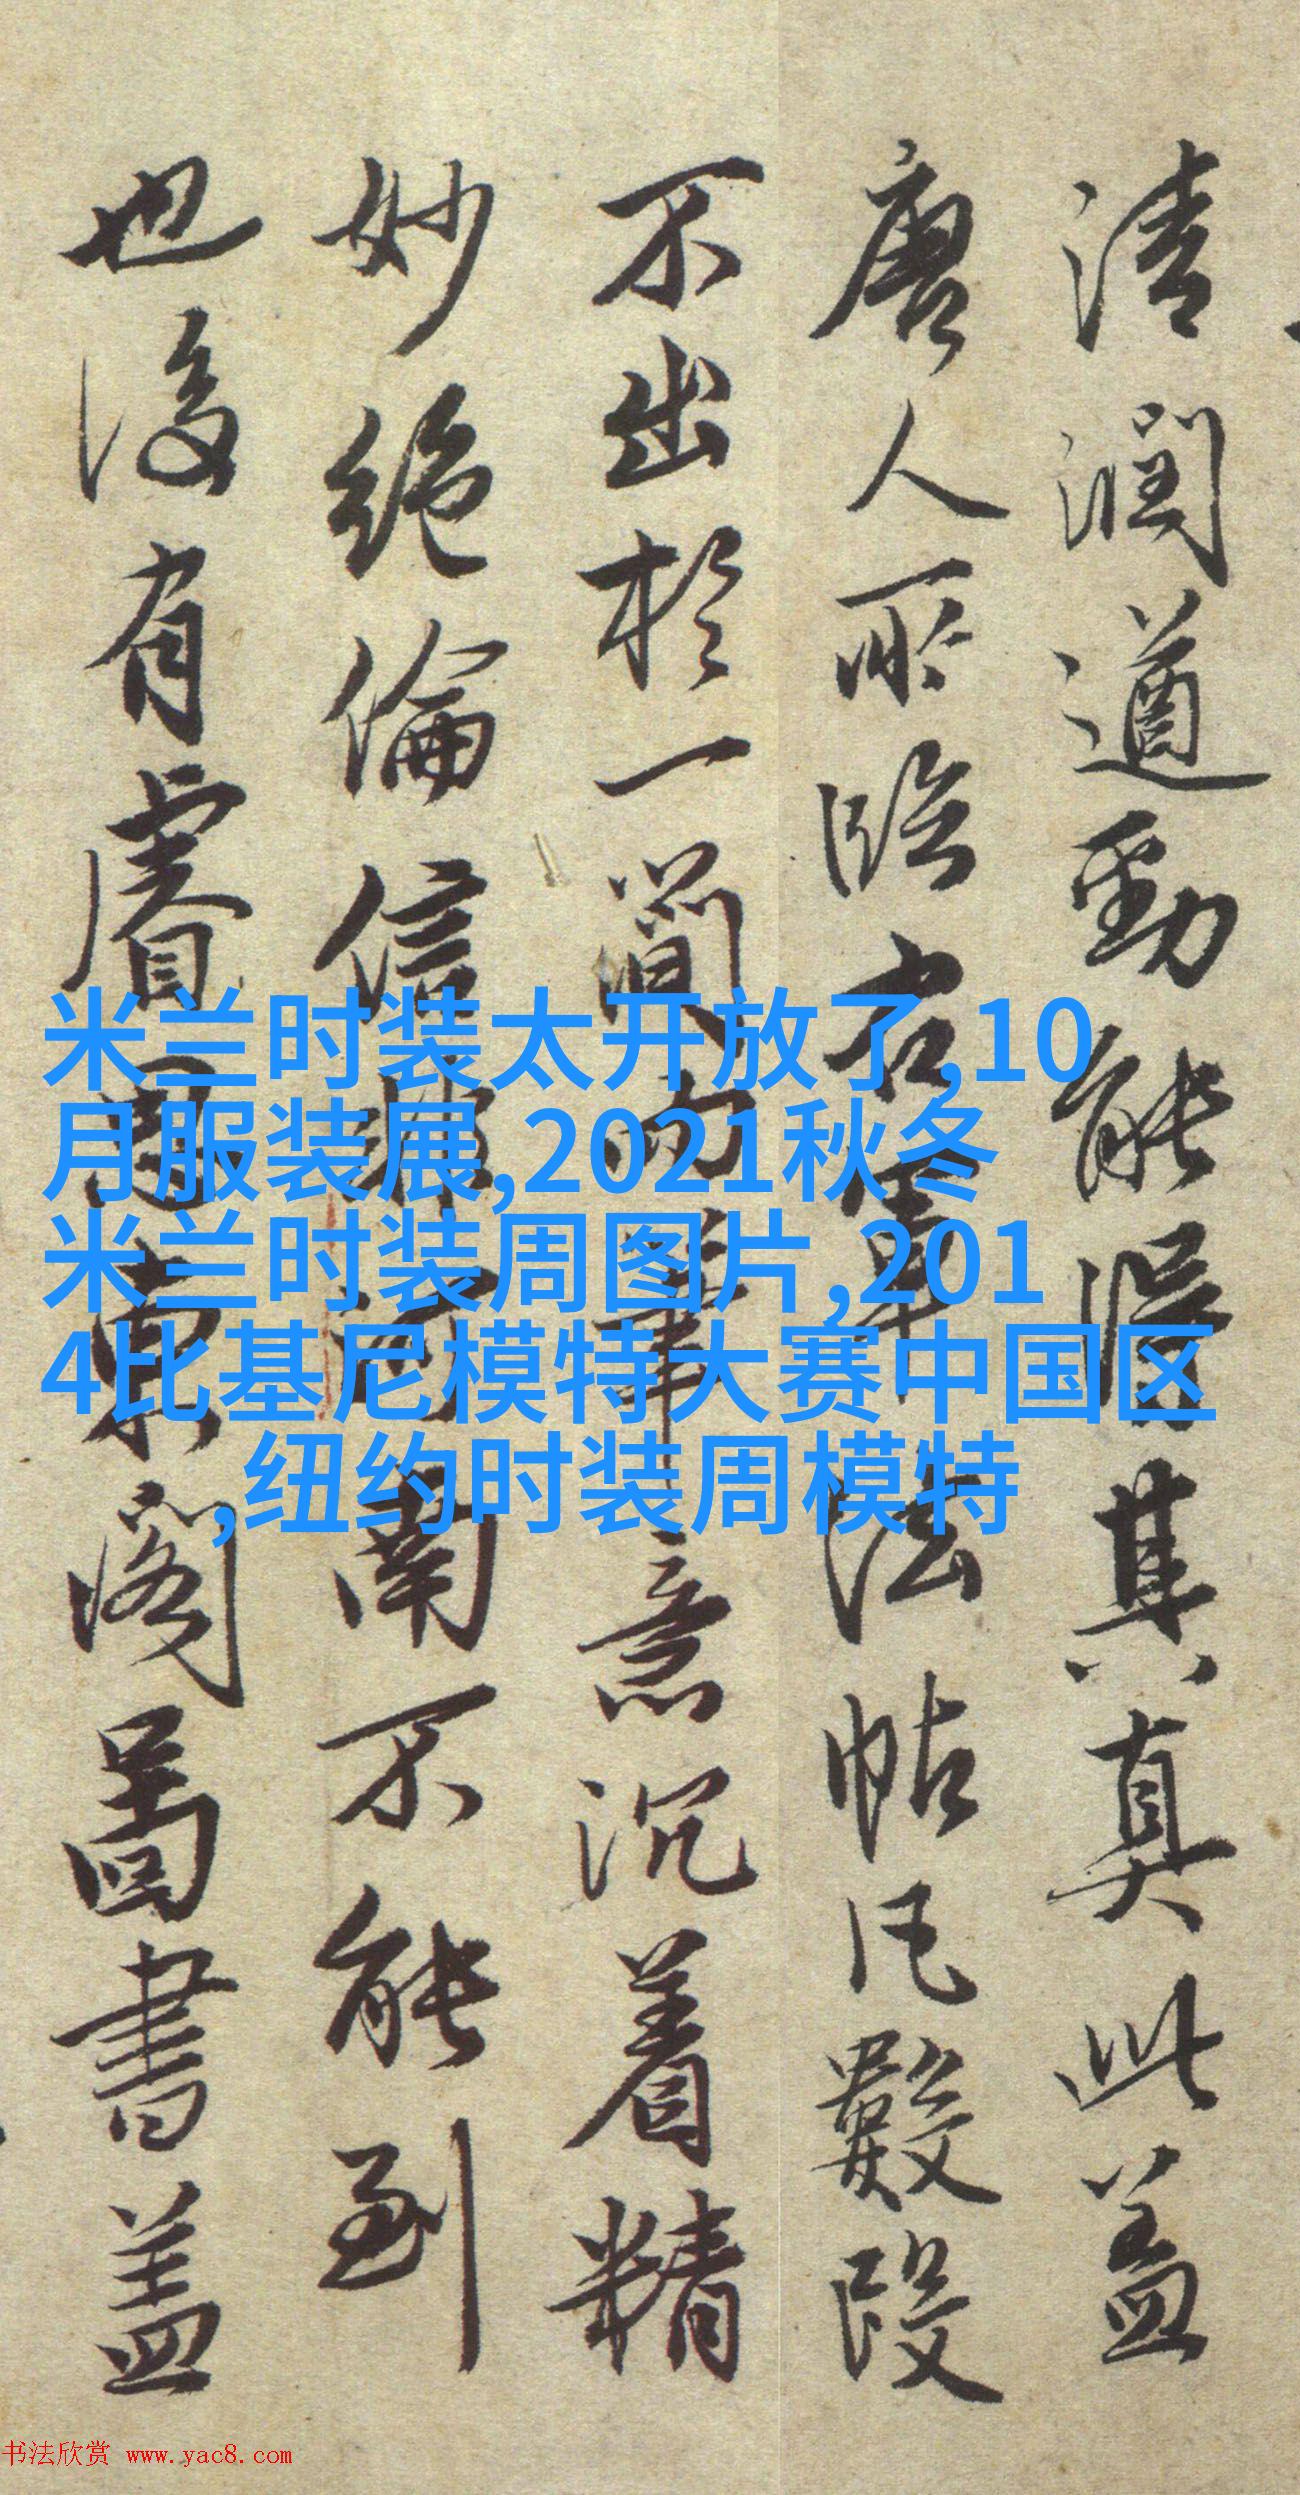 清潤遒勁能淂其真此盖
唐人所臨右軍法帖凡數段
不出於一簡而筆意沉着精
妙絶倫信河南不能到
也後有睿思東閣圖書盖
米兰时装太开放了,10
月服装展,2021秋冬
米兰时装周图片,201
4比基尼模特大赛中国区
,纽约时装周模特
书法欣赏 www.yac8.com